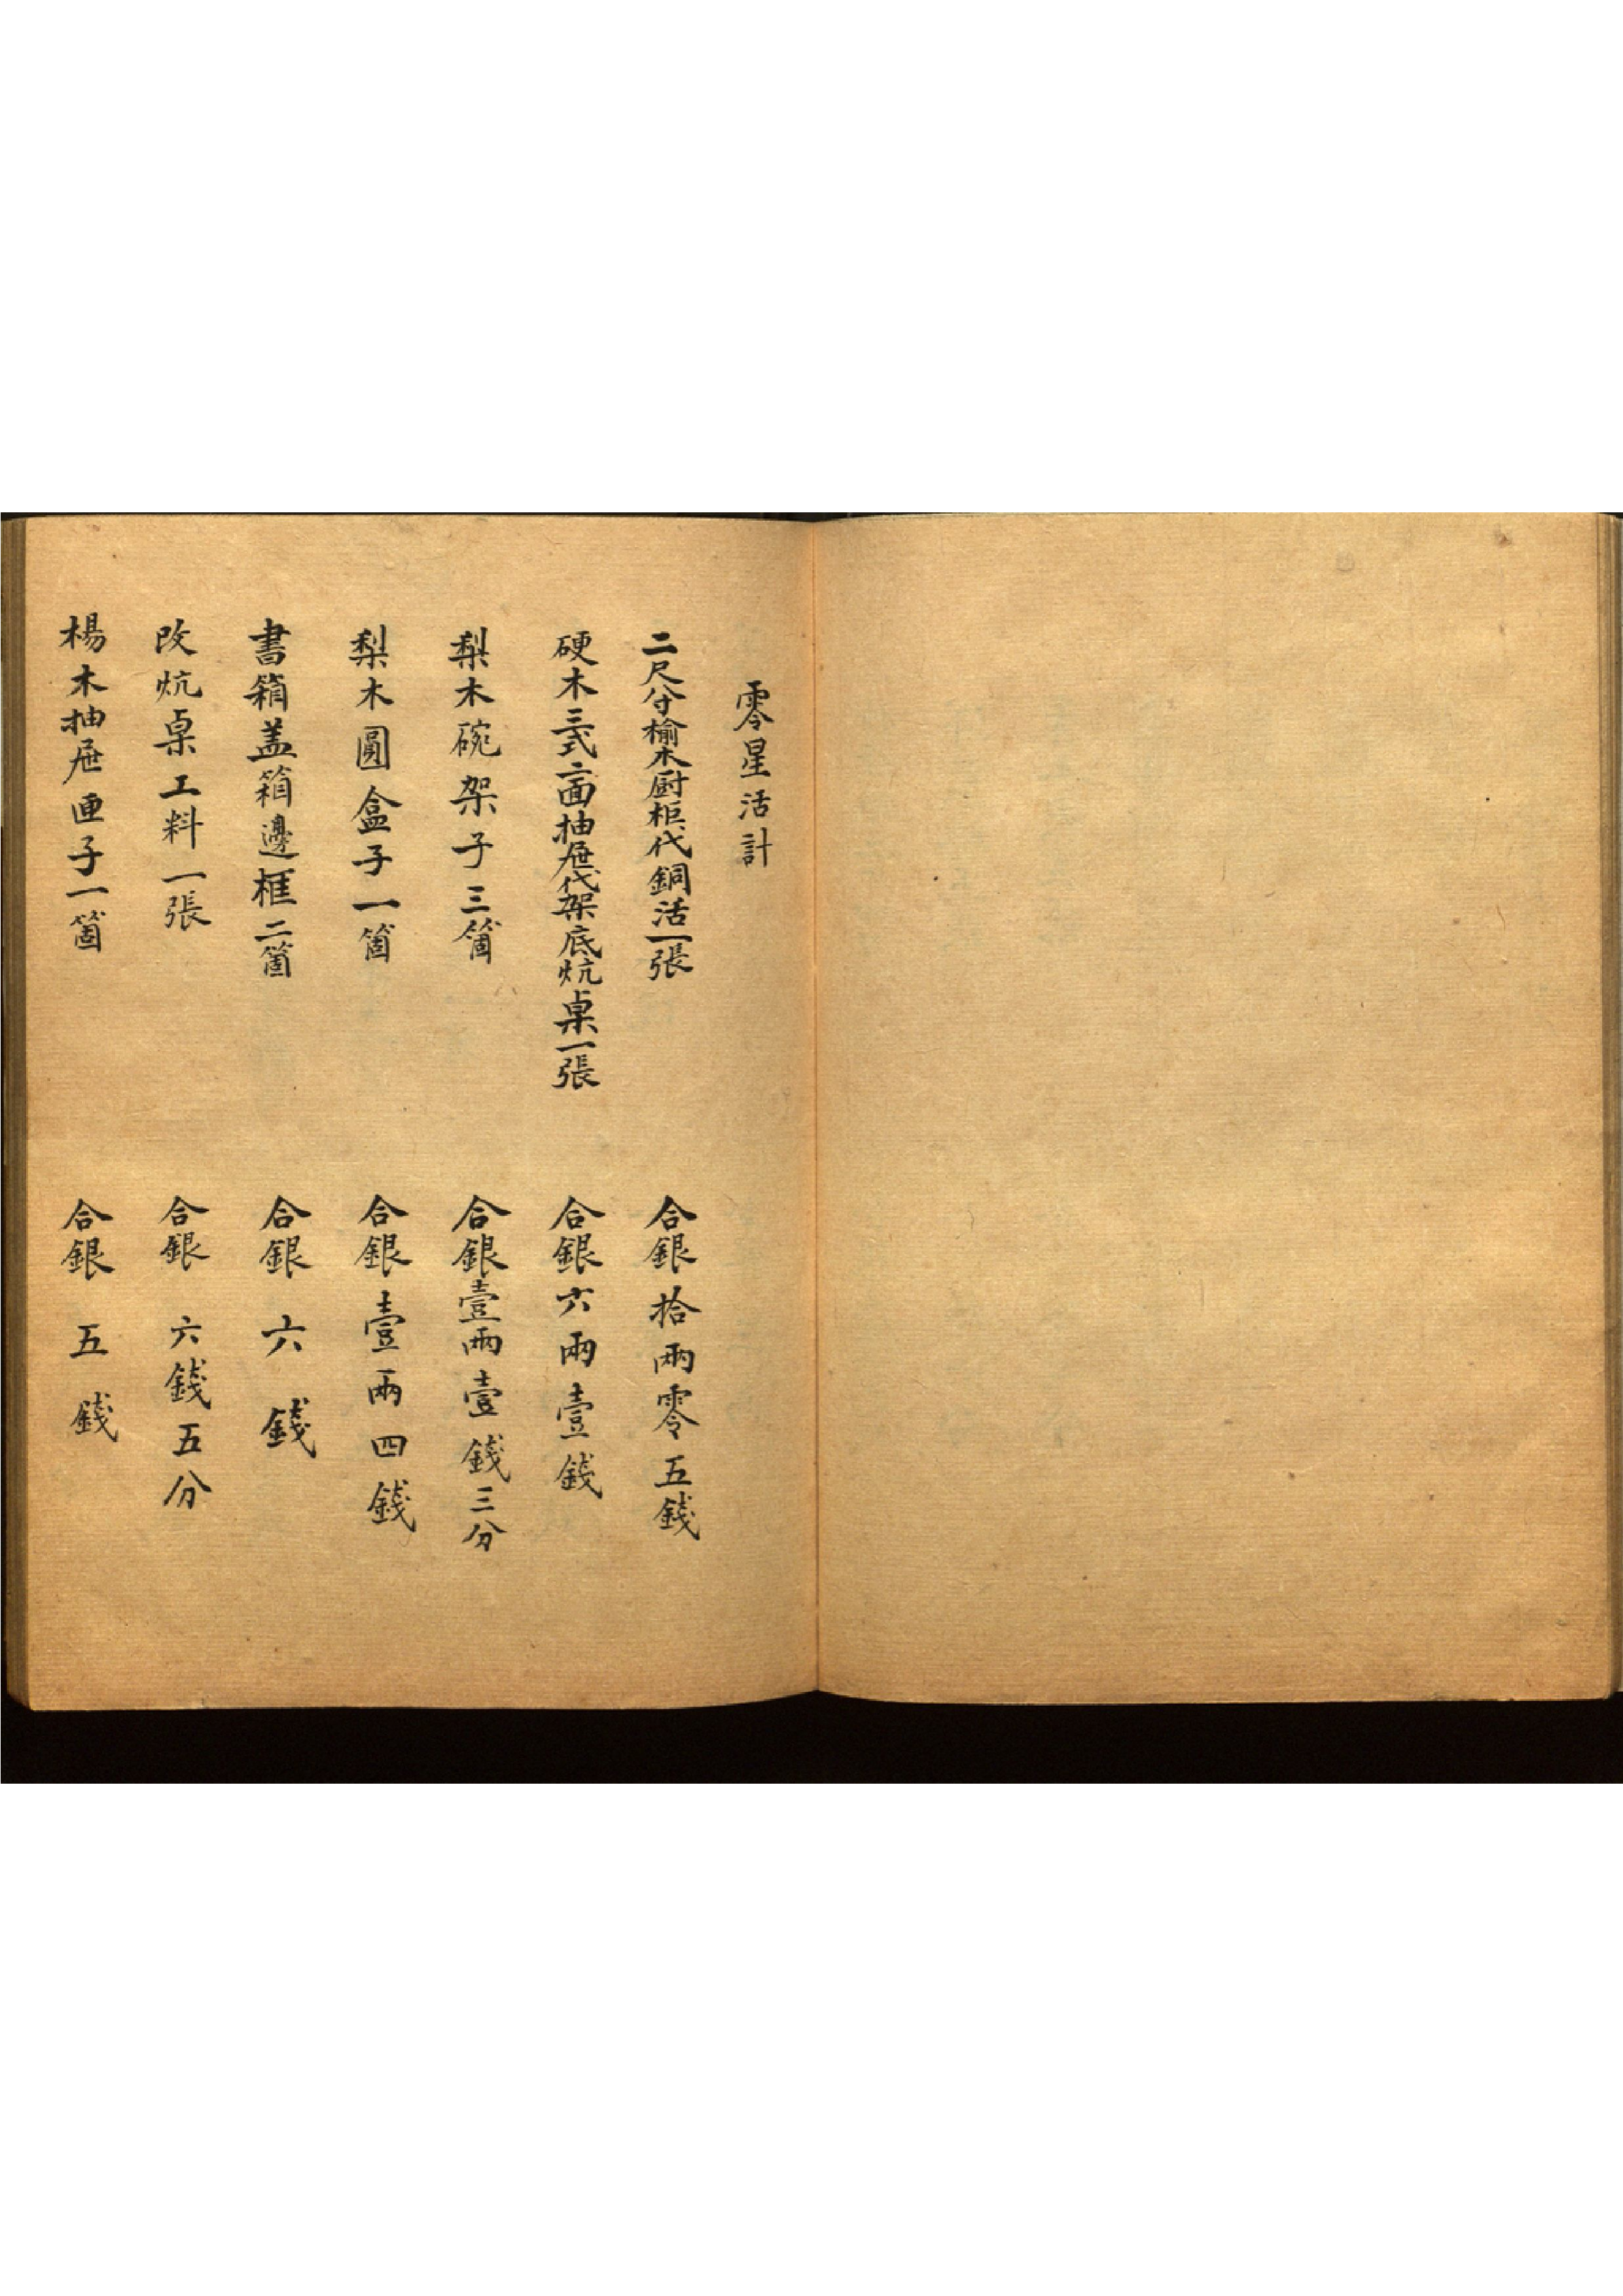 零星活計
二尺分榆木厨柜代銅活一張
合銀拾兩零五錢
硬木三式二面抽屉代架底炕桌一張
合銀六兩壹錢
梨木碗架子三箇
合銀壹兩壹錢三分
梨木圓盒子一箇
合銀壹兩四錢
書箱盖箱邊框二箇
合銀六錢
改炕桌工料一張
合銀六錢五分
楊木抽屉匣子一箇
合銀五錢